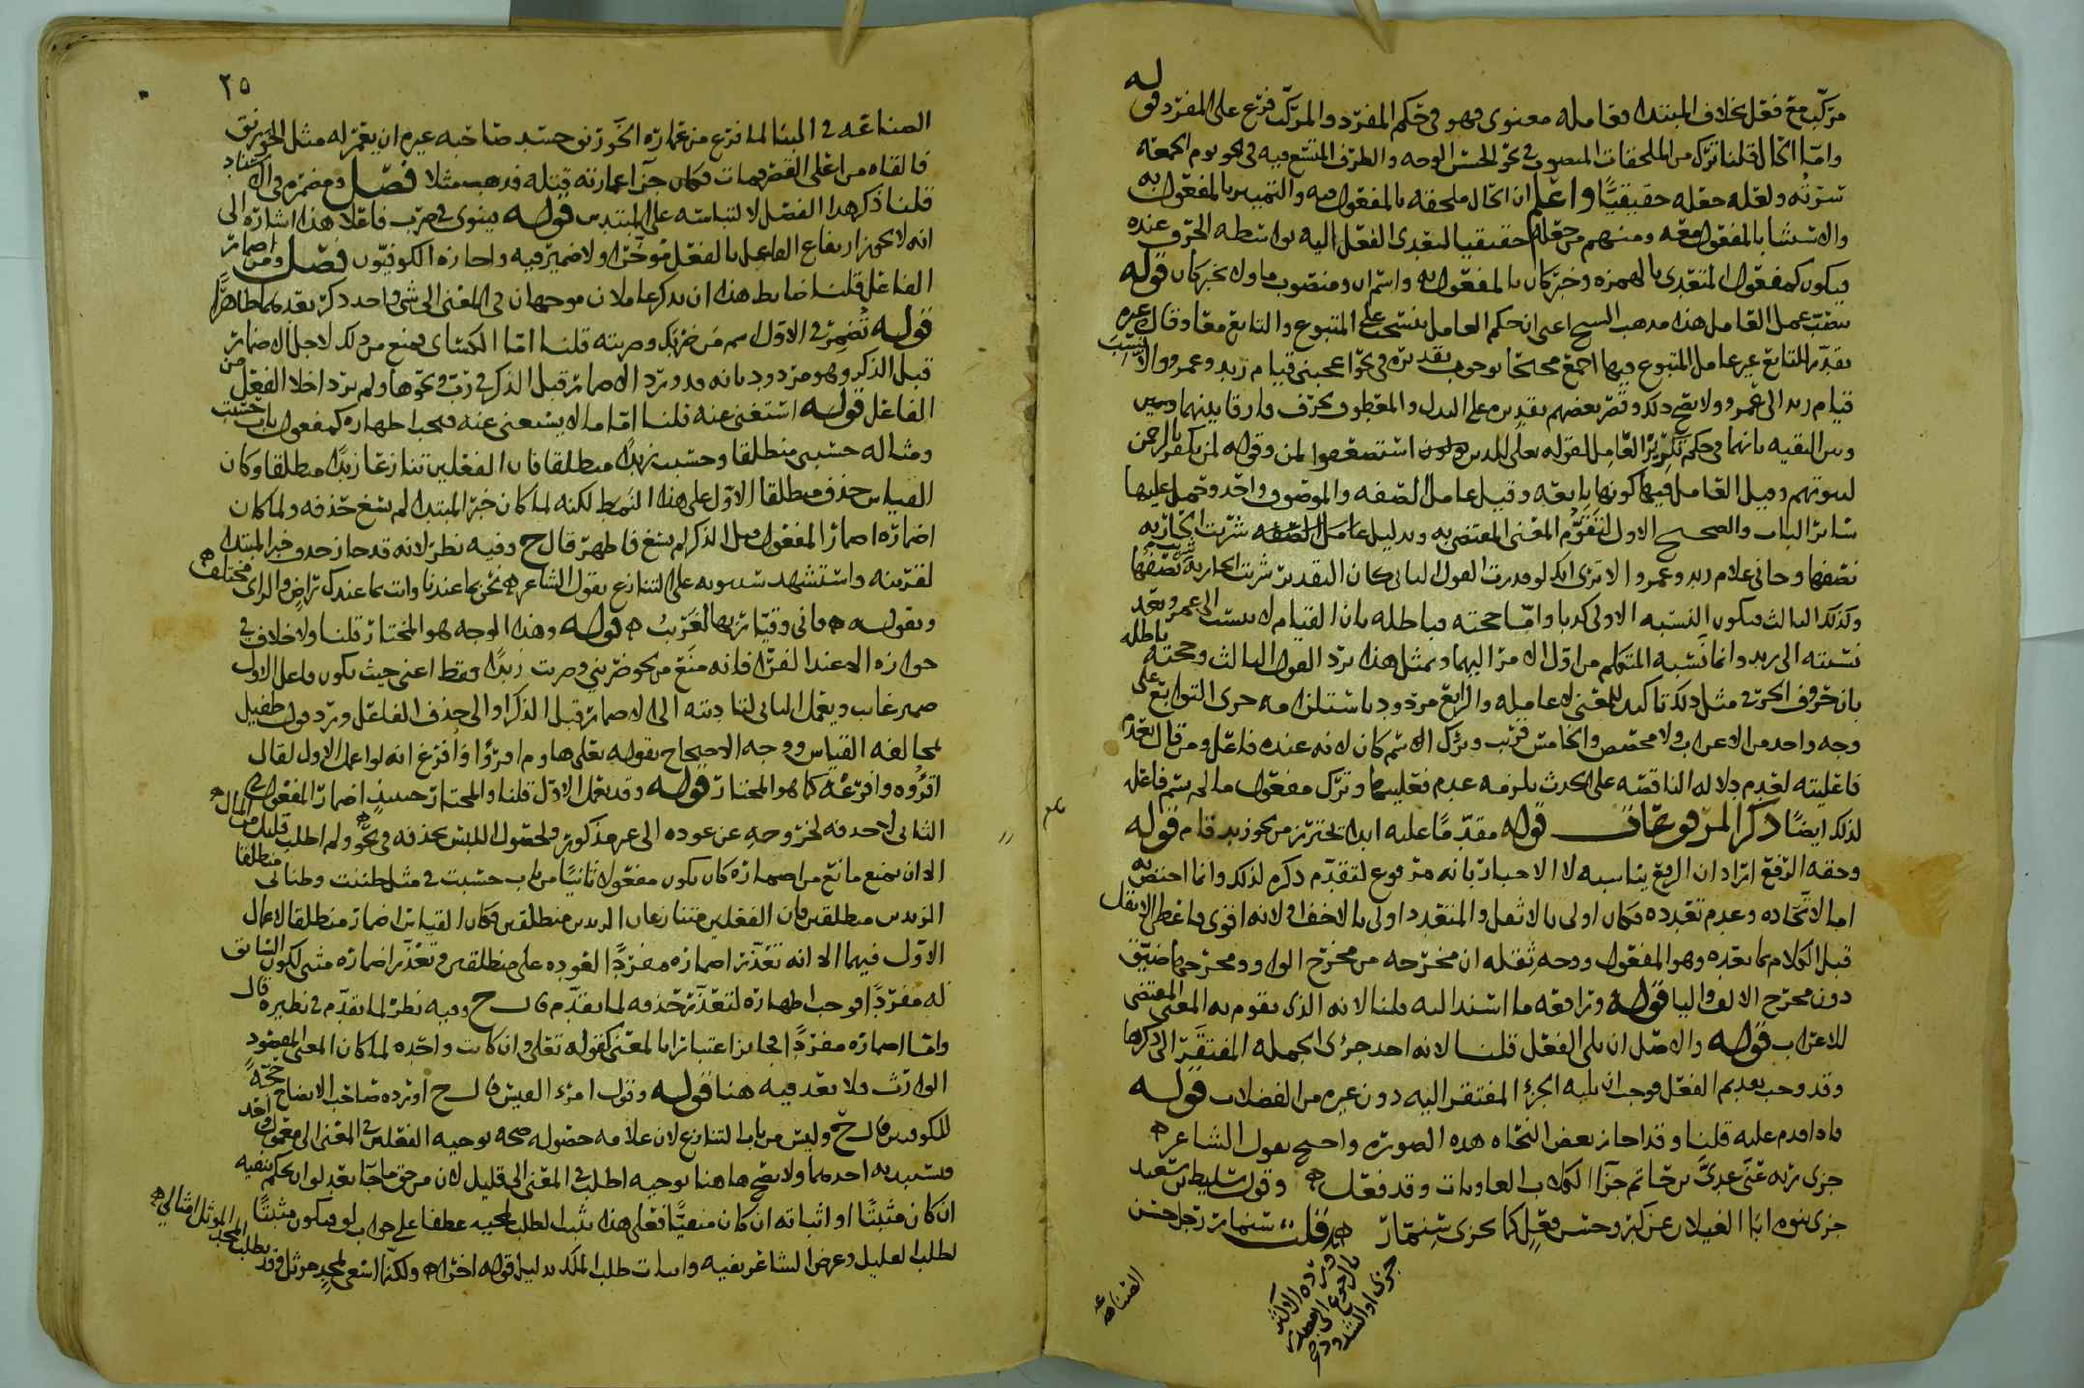 مركب مع فعل بخلاف المبتدا فعامله معنوي فهو في حكم المفرد والمركب فرع على المفرد قوله
واما الحال قلنا ترك من الملحقات المنصوب في نحو الحسن الوجه والظرف المتسع فيه في نحو يوم الجمعة
سرته ولعله جعله حقيقيا واعلم ان الحال ملحقه بالمفعول فيه والتمييز بالمفعول به
والاستثنا بالمفعول معه ومنهم من جعله حقيقيا لتعدي الفعل اليه بواسطة الحرف عنده
فيكون كمفعول المتعدي بالهمزه وخبر كان بالمفعول به واسم ان ومنصوب ما ولا بخبر كان قوله
العامل هذا مذهب اعني ان حكم العامل ينسحب على المتبوع والتابع معا وقال غيره
يقدر للتابع غير عامل المتبوع محتجا بوجوب تقديره في نحو اعجبني قيام زيد وعمرو
قيام زيد الى عمرو ولا يصح ذلك وقصر بعضهم تقديره على البدل والمعطوف بحرف فارقا بينهما وبين
وبين البقيه بانهما في حكم تكرير العامل لقوله تعلى للذين استضعفوا لمن وقوله لمن يكفر بالرحمن
لبيوتهم وقيل العامل فيها كونها تابعه وقيل عامل الصفه والموصوف واحد وحمل عليها
سائر الباب والصحيح الاول لتقوم المعنى المقتضي به وبدليل شربت الجاريه
نصفها وجاني غلام زيد وعمرو الا ترى انك لو قدرت القول الثاني كان التقدير شربت الجاريه شربت نصفها
وكذلك الثالث فيكون النسبه الاولى كذبا واما حجته فباطله بان القيام لا ينسب الى عمرو بعد
نسبته الى زيد وانما نسبه المتكلم من اول الامر اليهما وبمثل هذا يرد القول الثالث وحجته باطله
بان حروف الجر في مثل ذلك تاكيد للمعنى لا عامله والرابع مردود باستلزامه جرى التوابع على
وجه واحد من الاعراب ولا مخصص والخامس قريب وترك اسم كان لانه عنده فاعل ومن قال بعدم
فاعليته لعدم دلاله الناقصه على الحدث يلزمه عدم فعليتها وترك مفعول ما لم يسم فاعله
لذلك ايضا ذكر المرفوعات قوله مقدما عليه ابدا تحترز من نحو زيد قام قوله
وحقه الرفع اراد ان الرفع يناسبه لا الاخبار بانه مرفوع لتقدم ذكره لذلك وانما اختص به
اما لاتحاده وعدم تعدده فكان اولى بالاثقل والمتعدد اولى بالاخف او لانه اقوى فاعطي الاثقل
قبل الكلام بما بعده وهو المفعول ووجه ثقله ان مخرجه من مخرج الواو ومخرجها ضيق
دون مخرج الالف واليا قوله ورافعه ما اسند اليه قلنا لانه الذي تقوم به المعنى المقتضي
للاعراب قوله والاصل ان يلي الفعل قلنا لانه احد جزئ الجمله المفتقر الى ذكرها
وقد وجب تقديم الفعل فوجب ان يليه الجزء المفتقر اليه دون غيره من الفضلات قوله
فاذا قدم عليه قلنا وقد اجاز بعض النحاه هذه الصوره واحتج بقول الشاعر
جزى ربه عني عدي بن حاتم جزا الكلاب العاويات وقد فعل وقول سليط بن سعد
جزى بنوه ابا الغيلان عن كبر وحسن فعل كما يجزى سنمار قلت سنمار رجل حسن
الصناعه
٢٥
الصناعه في البنا لما فرغ من عماره الخورنق حسد صاحبه غيره ان يعمر له مثل الخورنق
فالقاه من اعلى القصر فمات فكان جزا عمارته قتله فذهب مثلا فصل ومضمره في الاسناد
قلنا ذكر هذا الفصل لالتباسه على المبتدين قوله وينوى في ضرب فاعلا هذا اشاره الى
انه لا يجوز ارتفاع الفاعل بالفعل مؤخرا ولا ضمير فيه واجازه الكوفيون فصل ومن اضمار
الفاعل قلنا ضابط هذا ان يذكر عاملان موجهان في المعنى الى شي واحد ذكر بعدهما ظاهرا
قوله تضمر في الاول اسم من ضربك وضربته قلنا اما الكسائي فمنع من ذلك لاجل الاضمار
قبل الذكر وهو مردود بانه قد ورد الاضمار قبل الذكر في رب ونحوها ولم يرد اخلا الفعل من
الفاعل قوله استغنى عنه قلنا اما ما لا يستغنى عنه فيجب اظهاره كمفعول باب حسبت
ومثاله حسبني منطلقا وحسبت زيدا منطلقا فان الفعلين تنازعا زيدا منطلقا وكان
القياس حذف منطلقا الاول على هذا النمط لكنه لما كان خبر المبتدا لم يسغ حذفه ولما كان
اضماره اضمار المفعول قبل الذكر لم يسغ فاظهر قال ح وفيه نظر لانه قد جاز حذف خبر المبتدا
لقرينه واستشهد سيبويه على التنازع بقول الشاعر نحن بما عندنا وانت بما عندك راض والراي مختلف
وبقوله فاني وقيار بها لغريب قوله وهذا الوجه هو المختار قلنا ولا خلاف في
جوازه الا عند الفرا فانه منع من نحو ضربني وضربت زيدا فقط اعني حيث يكون فاعل الاول
ضمير غايب ويعمل الثاني لتاديته الى الاضمار قبل الذكر او الى حذف الفاعل
مخالفه القياس ووجه الاحتجاج بقوله تعلى هاؤم اقرؤا وافرغ انه لو اعمل الاول لقال
اقرؤه وافرغه كما هو المختار قوله وقد يعمل الاول قلنا والمختار حينئذ اضمار المفعول في
الثاني لا حذفه لخروجه عن عوده الى غير مذكور ولحصول اللبس بحذفه في نحو ولم اطلب قليل من المال
الا ان يمنع مانع من اضماره كان يكون مفعولا ثانيا من باب حسبت في مثل ظننت وظناني منطلقا
الزيدين منطلقين فان الفعلين متنازعان الزيدين منطلقين فكان القياس اضمار منطلقا لاعمال
الاول فيهما الا انه تعذر اضماره مفردا لعوده على منطلقين وتعذر اضماره مثنى لكون السابق
له مفردا فوجب اظهاره لتعذر حذفه لما تقدم قال ح وفيه نظر لما تقدم في نظيره قال
واما اضماره مفردا فجايز اعتبارا بالمعنى كقوله تعلى وان كانت واحده لما كان المعنى المقصود
الوارث فلا بعد فيه هنا قوله وقول امرء القيس قال ح اورده صاحب الايضاح حجة
للكوفيين قال ح وليس من باب التنازع لان علامه حصوله صحه توجيه الفعلين في المعنى الى معمول واحد
احدهما ولا يصح هاهنا توجيه اطلب في المعنى الى قليل لان من حق ما جا بعد لو ان يحكم بنفيه
ان كان مثبتا او اثباته ان كان منفيا فعلى هذا يثبت الطلب لمجيه عطفا على جواب لو فيكون مثبتا
لطلب القليل وغرض الشاعر نفيه واثبات طلب الملك بدليل قوله اخرا ولكنما اسعى لمجد موثل وقد يطلب المجد الموثل امثالي